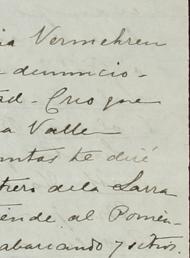 ia Vermehren
denuncio-
ad. Creo que
a Valle
ntas te diré
trero de la Sarra
iende al Pomen-
abarcando 7 sitios.